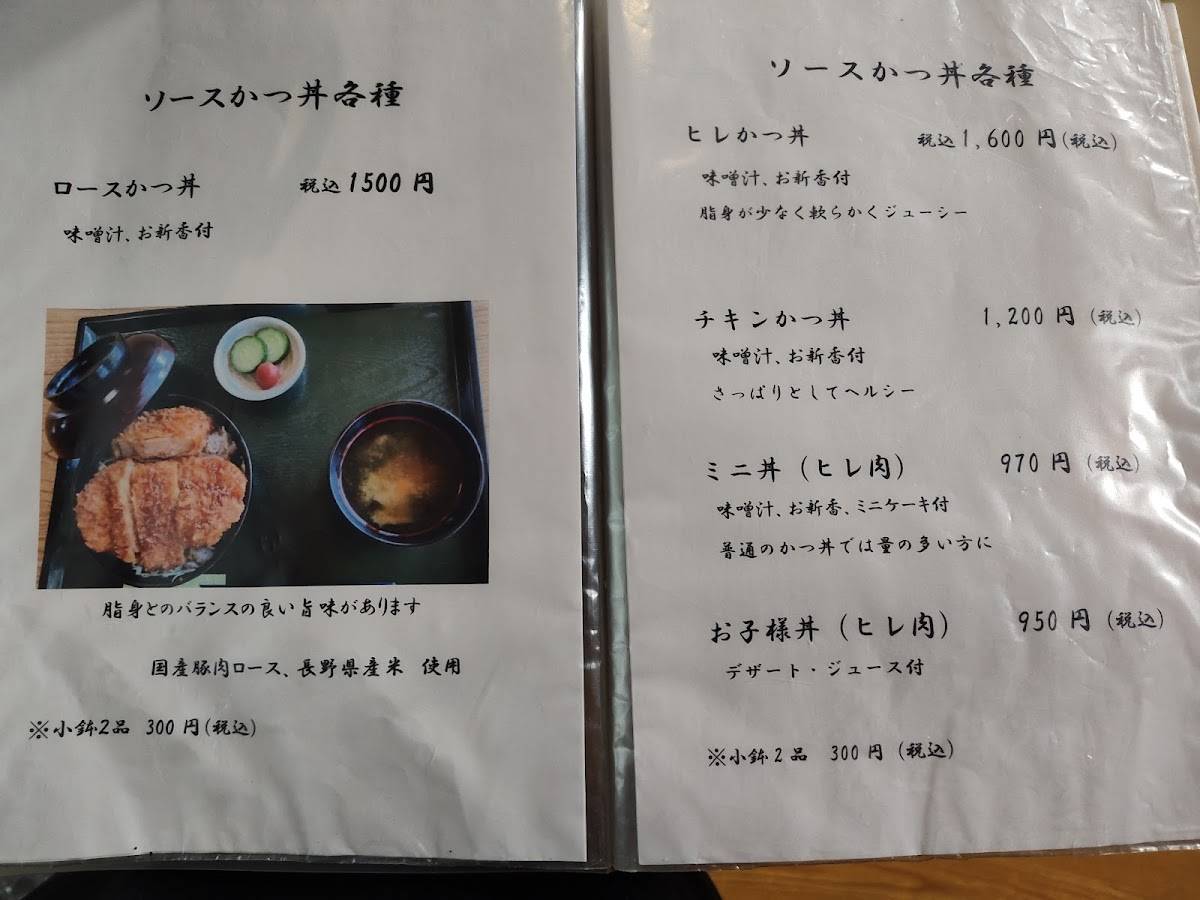 ソースかつ丼各種
ロースかつ丼 税込1500円
味噌汁、お新香付
脂身とのバランスの良い旨味があります
国産豚肉ロース、長野県産米 使用
※小鉢2品 300円(税込)
ソースかつ丼各種
ヒレかつ丼 税込1,600円(税込)
味噌汁、お新香付
脂身が少なく軟らかくジューシー
チキンかつ丼 1,200円(税込)
味噌汁、お新香付
さっぱりとしてヘルシー
ミニ丼(ヒレ肉) 970円(税込)
味噌汁、お新香、ミニケーキ付
普通のかつ丼では量の多い方に
お子様丼(ヒレ肉) 950円(税込)
デザート・ジュース付
※小鉢2品 300円(税込)